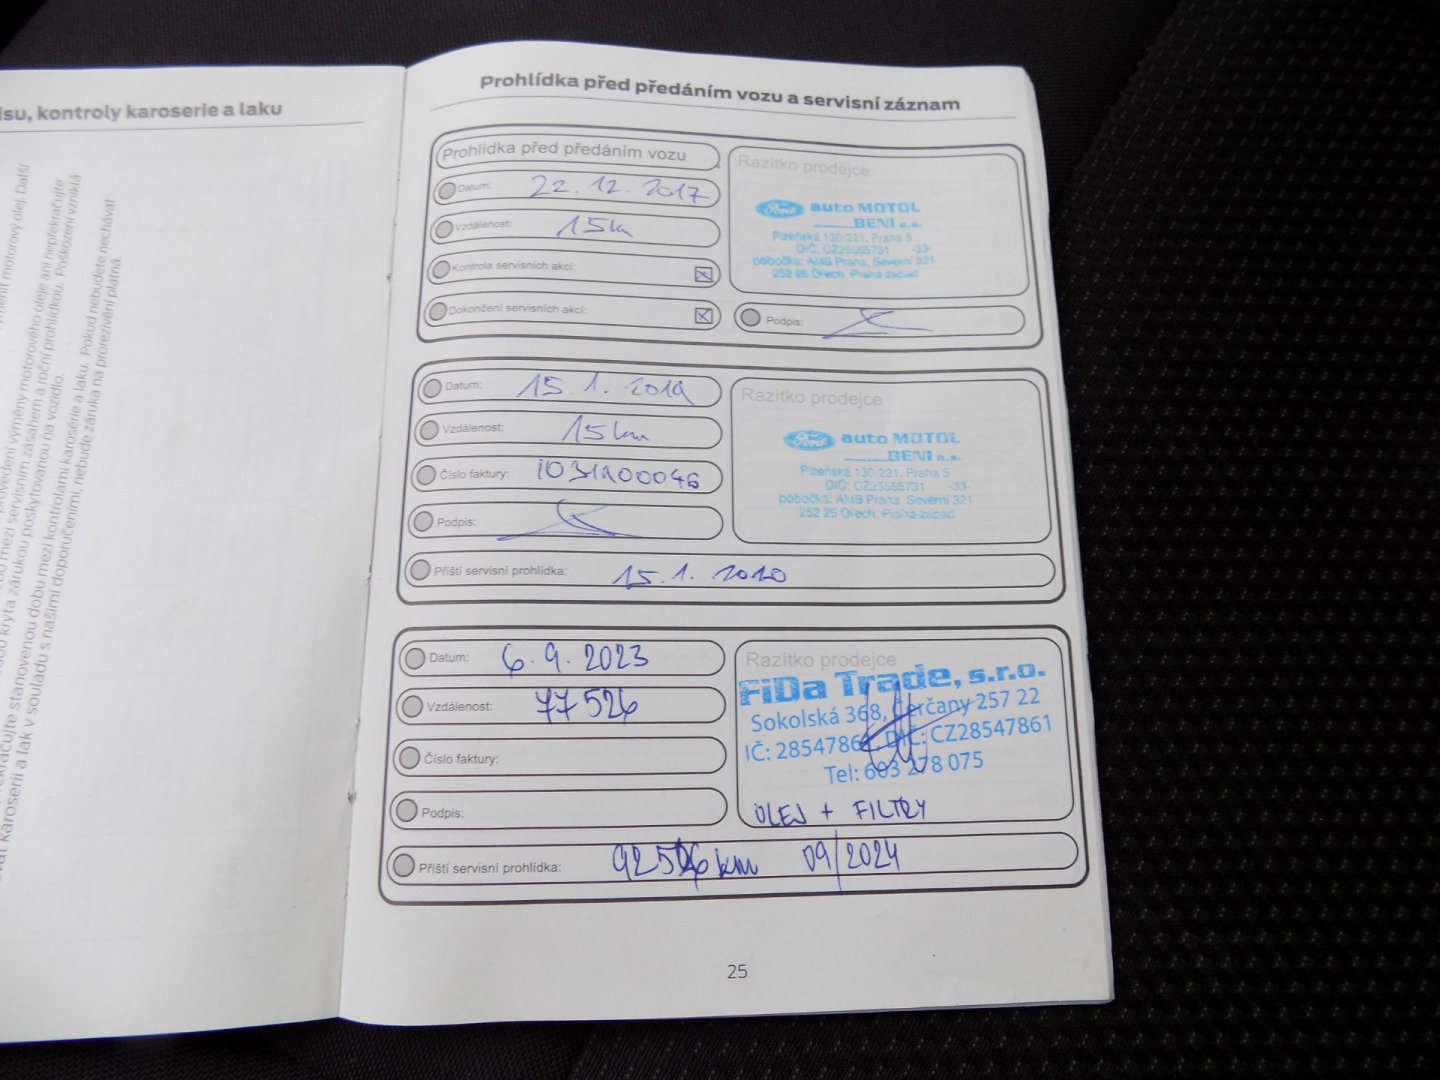 isu, kontroly karoserie a laku
měnit motorový olej. Další
provedení výměny motorového oleje ani nepřekračujte
dobu mezi servisním zásahem a roční prohlídkou. Poškození vzniklá
kryta zárukou poskytovanou na vozidlo.
ekračujte stanovenou dobu mezi kontrolami karosérie a laku. Pokud nebudete nechávat
karoserii a lak v souladu s našimi doporučeními, nebude záruka na prorezivění platná.
Prohlídka před předáním vozu a servisní záznam
Prohlídka před předáním vozu
Datum: 22.12.2017
Vzdálenost: 15km
Kontrola servisních akcí:
Dokončení servisních akcí:
Razítko prodejce
Ford auto MOTOL
BENI a.s.
Plzeňská 130/221, Praha 5
DIČ: CZ25565731 -33-
pobočka: AMB Praha, Severní 321
252 25 Ořech, Praha-západ
Podpis:
Datum: 15.1.2019
Vzdálenost: 15km
Číslo faktury: 1031900046
Podpis:
Razítko prodejce
Ford auto MOTOL
BENI a.s.
Plzeňská 130/221, Praha 5
DIČ: CZ25565731 -33-
pobočka: AMB Praha, Severní 321
252 25 Ořech, Praha-západ
Příští servisní prohlídka: 15.1.2020
Datum: 6.9.2023
Vzdálenost: 77526
Číslo faktury:
Podpis:
Razítko prodejce
FiDa Trade, s.r.o.
Sokolská 368, Čerčany 257 22
IČ: 28547861, DIČ: CZ28547861
Tel: 603 278 075
OLEJ + FILTRY
Příští servisní prohlídka: 92526 km 09/2024
25